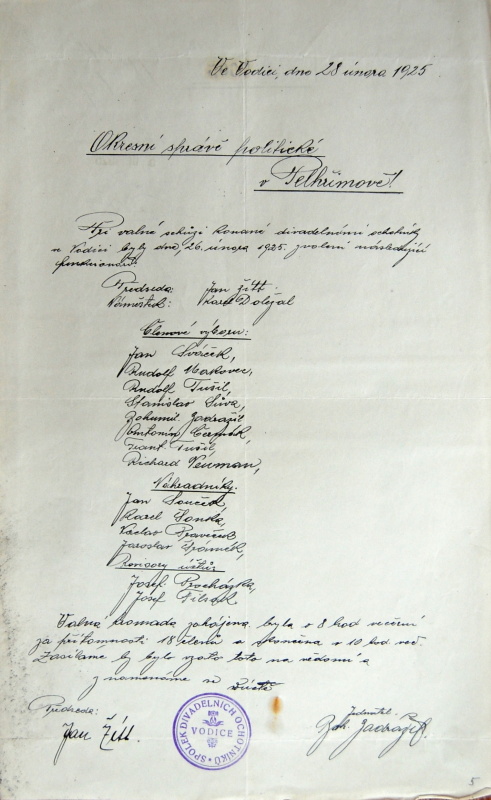 Ve Vodici, dne 28 února 1925
Okresní správě politické
v Pelhřimově!
Při valné schůzi konané divadelními ochotníky
u Vodici byly dne, 26. února 1925. zvoleni následující
funkcionáři:
Předseda: Jan Žitt.
Náměstek: Karel Doležal
Členové výboru:
Jan Sváček,
Rudolf Makovec,
Rudolf Tušil,
Stanislav Sůva,
Bohumil Zadražil
Antonín Čermák,
Frant. Tušil,
Richard Neuman,
Náhradníky:
Jan Souček,
Karel Sonka,
Václav Pravíček,
Jaroslav
Revisory účtů:
Josef Procházka,
Josef
Valná hromada zahájena byla o 8 hod večerní
za přítomnosti 18 členů a skončena o 10 hod več.
Zasíláme by bylo vzato toto na vědomí a
znamenáme se v úctě
Předseda: Jednatel:
Jan Žitt. Boh. Zadražil.
SPOLEK DIVADELNÍCH OCHOTNÍKŮ
VODICE
5